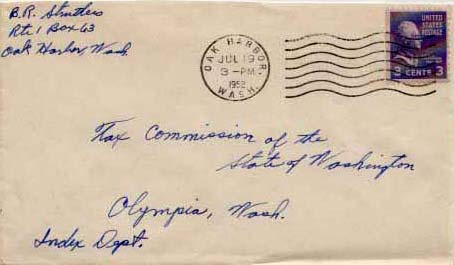 B.R. Struthers
Rt. 1 Box 63
Oak Harbor, Wash.
OAK HARBOR
JUL 19
3-PM
1952
WASH.
UNITED
STATES
POSTAGE
3 CENTS 3
Tax Commission of the
State of Washington
Olympia, Wash.
Index Dept.